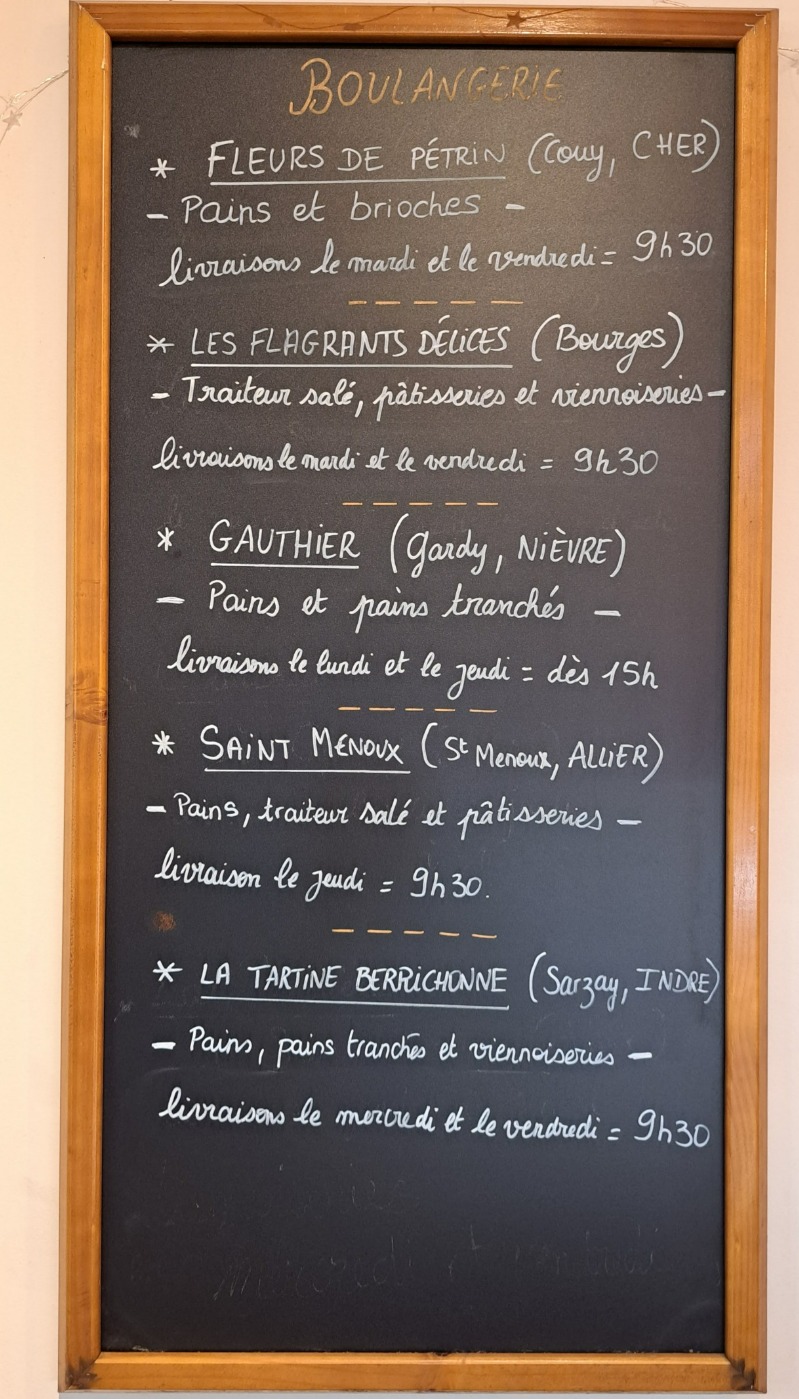 BOULANGERIE
* FLEURS DE PÉTRIN (Couy, CHER)
- Pains et brioches -
livraisons le mardi et le vendredi = 9h30
* LES FLAGRANTS DÉLICES (Bourges)
- Traiteur salé, pâtisseries et viennoiseries -
livraisons le mardi et le vendredi = 9h30
* GAUTHIER (Gardy, NIÈVRE)
- Pains et pains tranchés -
livraisons le lundi et le jeudi = dès 15h
* SAINT MENOUX (St Menoux, ALLIER)
- Pains, traiteur salé et pâtisseries -
livraison le jeudi = 9h30.
* LA TARTINE BERRICHONNE (Sarzay, INDRE)
- Pains, pains tranchés et viennoiseries -
livraisons le mercredi et le vendredi = 9h30